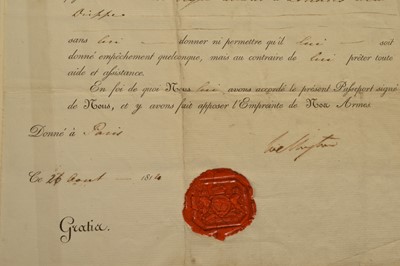 Dieppe
sans lui donner ni permettre qu'il lui soit
donné empêchement quelconque, mais au contraire de lui prêter toute
aide et assistance.
En foi de quoi Nous lui avons accordé le présent Passeport signé
de Nous, et y avons fait apposer l'Empreinte de Nos Armes
Donné à Paris
Wellington
Ce 26 Août 1814
Gratis.